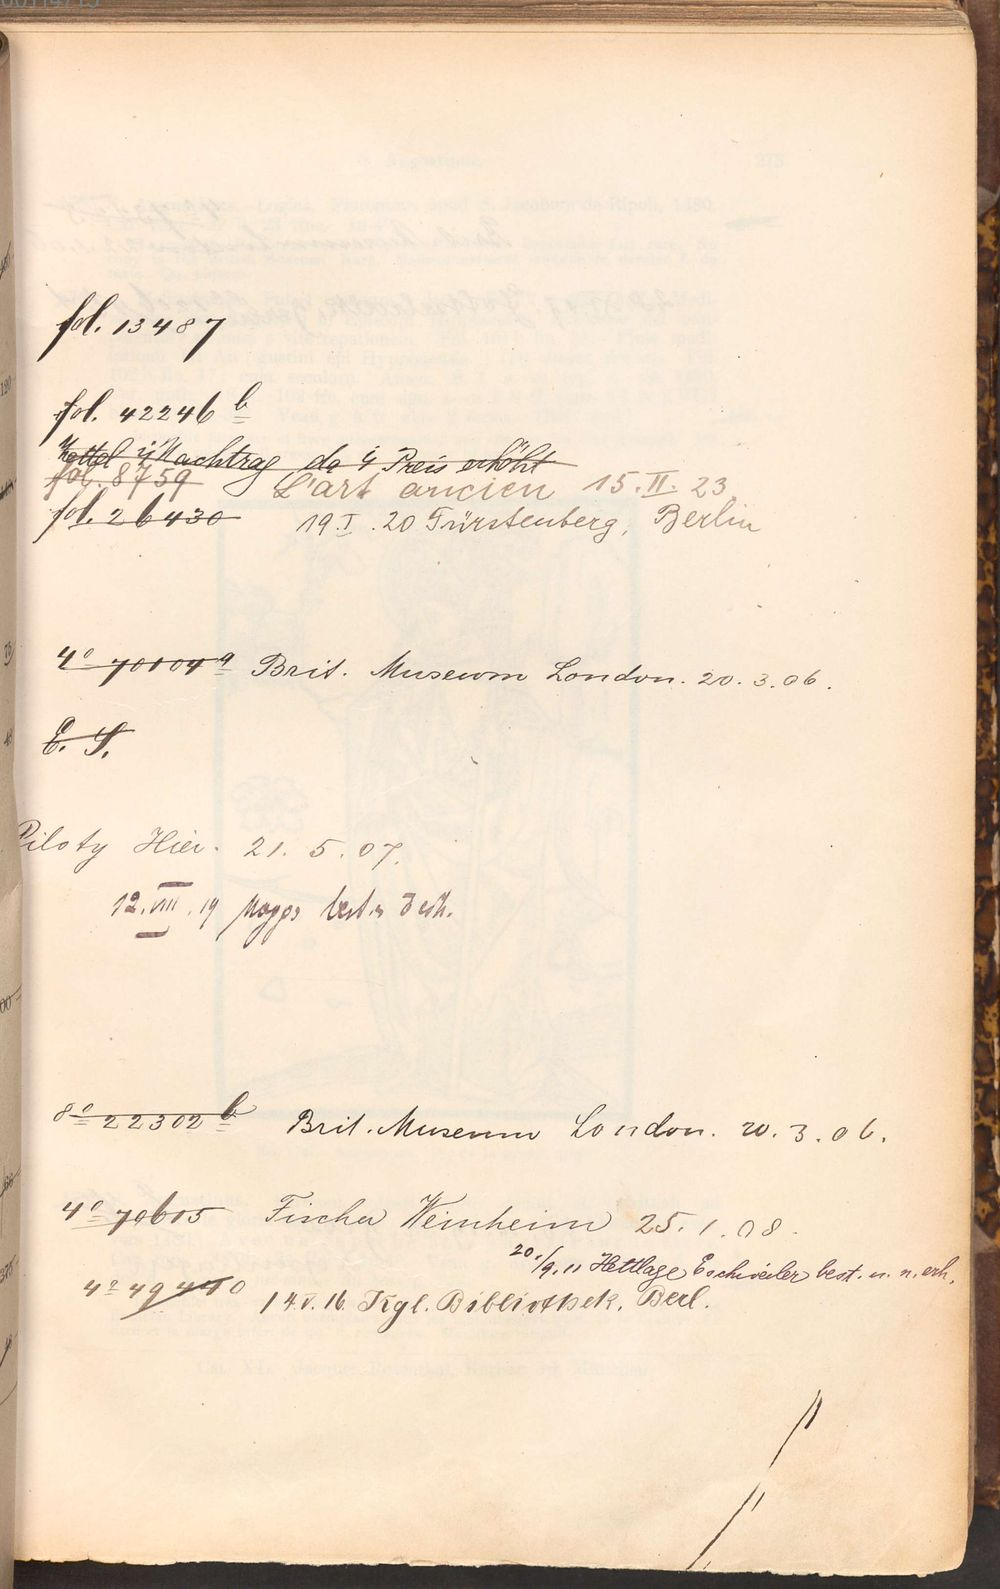 fol. 13487
fol. 42246 b
Zettel i/ Nachtrag da i Preis erhöht
fol. 8759 L'art ancien 15.II.23
fol. 26430 19.I.20 Fürstenberg, Berlin
4º 70104 a Brit. Museum London. 20.3.06.
E. S.
Piloty Hier. 21.5.07.
12.VIII.19 Maggs best.
8º 22302 b Brit. Museum London. 20.3.06.
4º 70605 Fischer Weinheim 25.1.08.
20./9.11 Hettlage Eschweiler best. u. n. erh.
4º 49440 14.V.16. Kgl. Bibliothek, Berl.